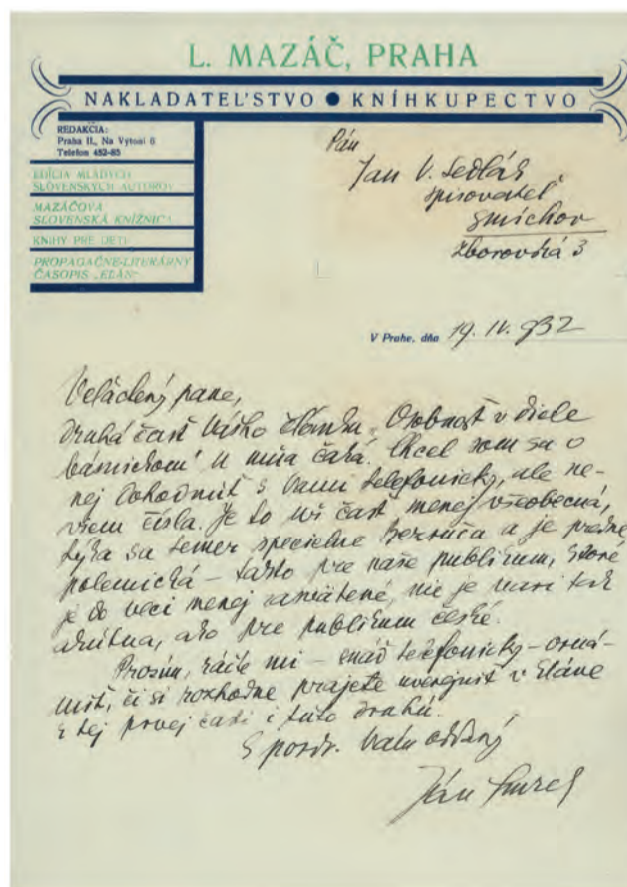 L. MAZÁČ, PRAHA
NAKLADATEĽSTVO ● KNÍHKUPECTVO
REDAKCIA:
Praha II., Na Výtoni 6
Telefon 452-85
EDÍCIA MLADÝCH
SLOVENSKÝCH AUTOROV
MAZÁČOVA
SLOVENSKÁ KNIŽNICA
KNIHY PRE DETI
PROPAGAČNE-LITERÁRNY
ČASOPIS „ELÁN“
Pán
Jan V. Sedlák
spisovateľ
Smíchov
Zborovská 3
V Prahe, dňa 19. IV. 932
Veľactený pane,
druhá časť Vášho článku „Osobnosť v diele
básnickom" u mňa čaká. Chcel som sa o
nej dohodnúť s Vami telefonicky, ale ne-
viem čísla. Je to už časť menej všeobecná,
týka sa temer špeciálne Bezruča a je
polemická – takto pre naše publikum, ktoré
je do veci menej zasvätené, nie je
akútna, ako pre publikum české.
Prosím, ráčte mi – snáď telefonicky – ozná-
miť, či si rozhodne prajete uverejniť v Eláne
z tej prvej časti i túto druhú.
S pozdr. Vám oddaný
Ján Smrek